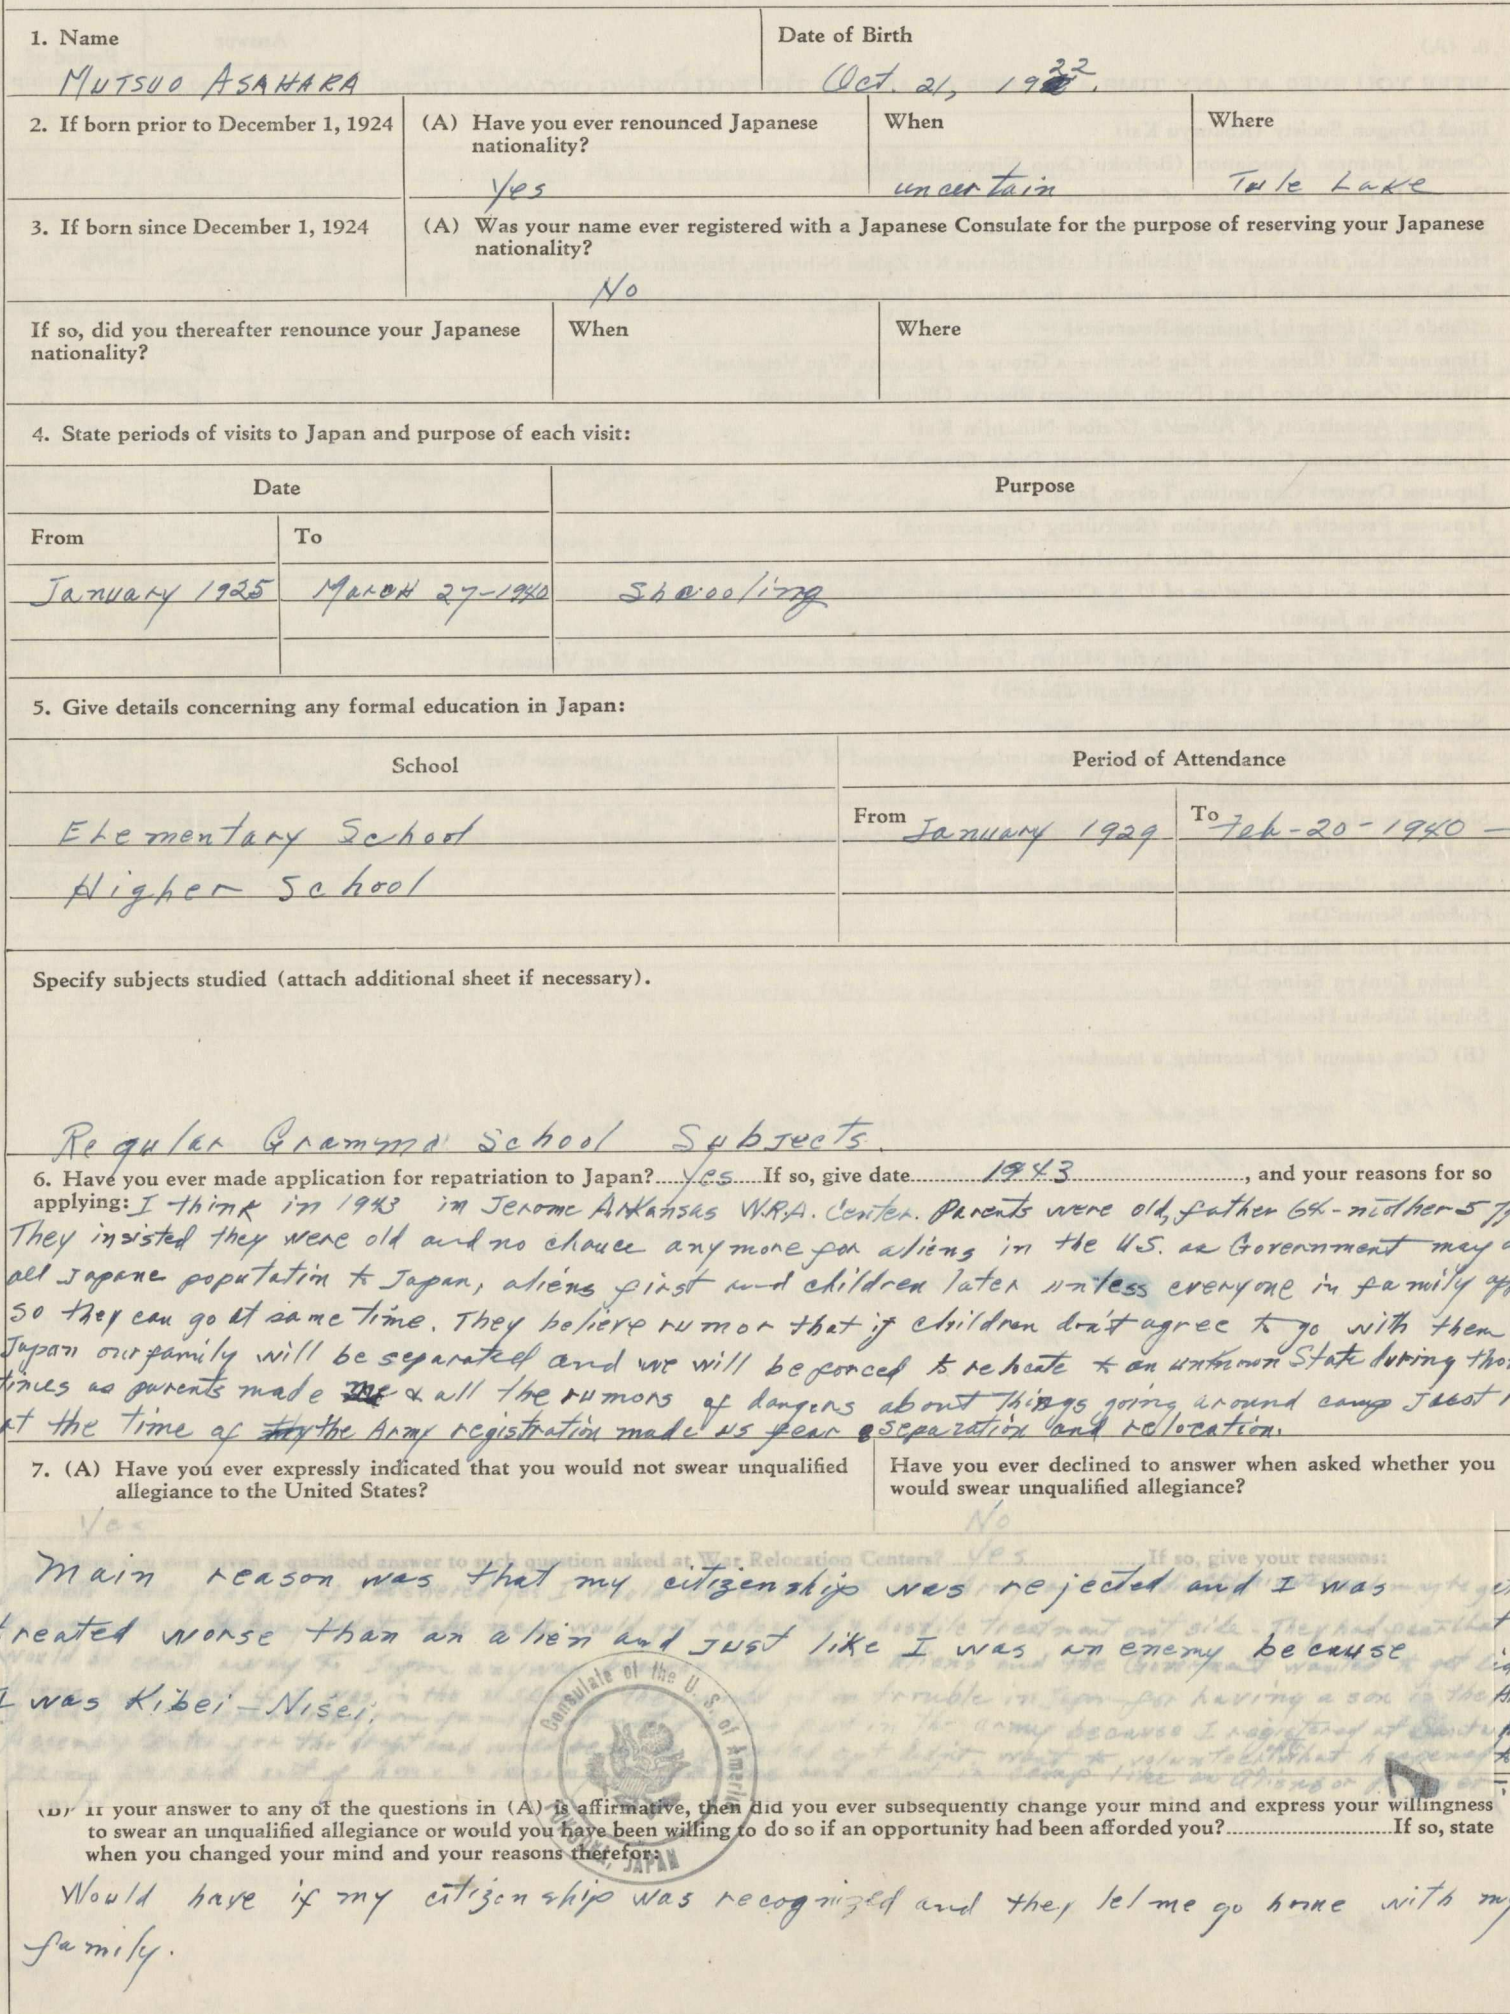 1. Name
Date of Birth
MUTSUO ASAHARA
Oct. 21, 1922.
2. If born prior to December 1, 1924
(A) Have you ever renounced Japanese
nationality?
When
Where
Yes
uncertain
Tule Lake
3. If born since December 1, 1924
(A) Was your name ever registered with a Japanese Consulate for the purpose of reserving your Japanese
nationality?
No
If so, did you thereafter renounce your Japanese
nationality?
When
Where
4. State periods of visits to Japan and purpose of each visit:
Date
Purpose
From
To
January 1925
March 27-1940
Shcooling
5. Give details concerning any formal education in Japan:
School
Period of Attendance
From January 1929
To Feb-20-1940 -
Elementary School
Higher School
Specify subjects studied (attach additional sheet if necessary).
Regular Gramma School Subjects.
6. Have you ever made application for repatriation to Japan? Yes If so, give date 1943, and your reasons for so
applying: I think in 1943 in Jerome Arkansas W.R.A. Center. Parents were old, father 64 - mother 57
They insisted they were old and no chance anymore for aliens in the U.S. as Government may
all Japane population to Japan, aliens first and children later unless everyone in family
so they can go at same time. They believe rumor that if children don't agree to go with them
Japan our family will be separated and we will be forced to relocate to an unknown State during
times as parents made & all the rumors of dangers about things going around camp
at the time of the Army registration made us fear separation and relocation.
7. (A) Have you ever expressly indicated that you would not swear unqualified
allegiance to the United States?
Have you ever declined to answer when asked whether you
would swear unqualified allegiance?
Yes
No
a qualified answer to such question asked at War Relocation Centers? Yes If so, give your reasons:
Main reason was that my citizenship was rejected and I was
treated worse than an alien and just like I was an enemy because
I was Kibei-Nisei.
Consulate of the U. S. of America
JAPAN
(B) If your answer to any of the questions in (A) is affirmative, then did you ever subsequently change your mind and express your willingness
to swear an unqualified allegiance or would you have been willing to do so if an opportunity had been afforded you? If so, state
when you changed your mind and your reasons therefor:
Would have if my citizenship was recognized and they let me go home with my
family.